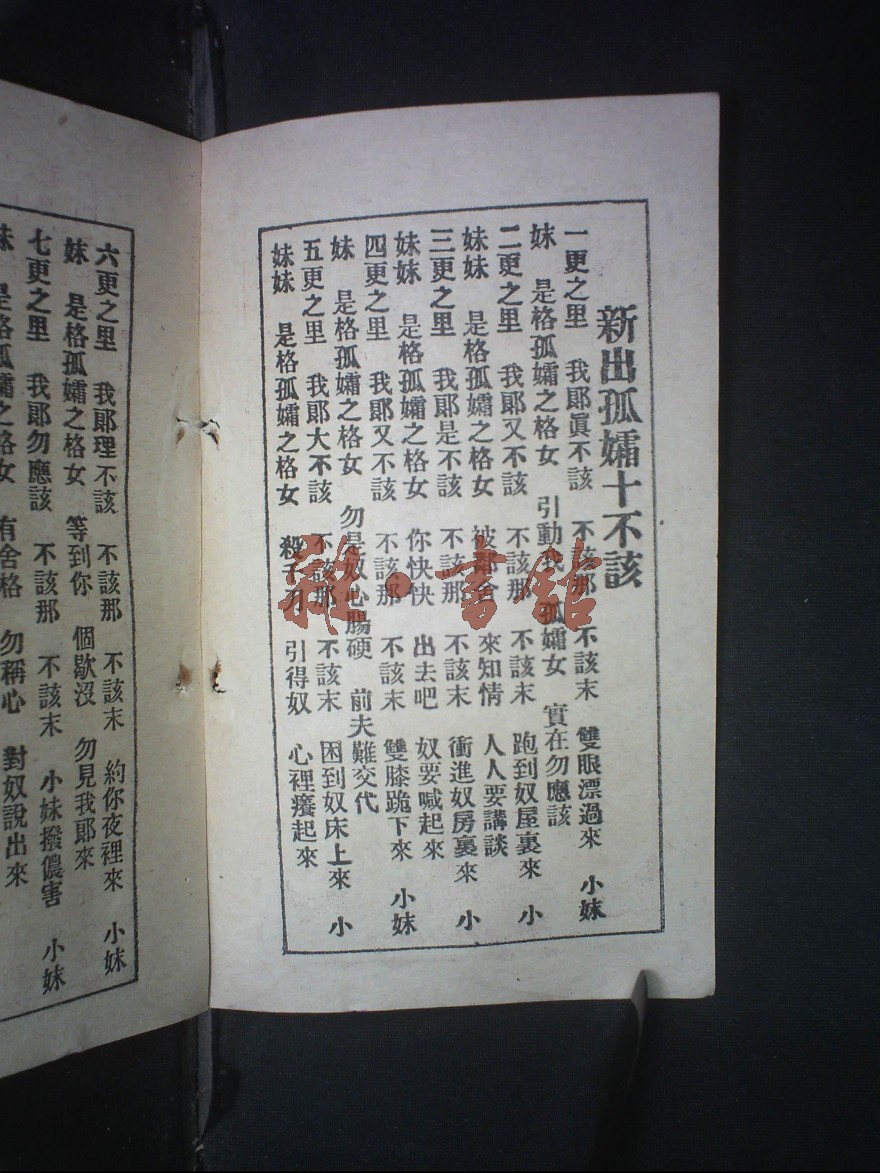 新出孤孀十不該
一更之里 我郞眞不該 不該那 不該末 雙眼漂過來 小妹
妹 是格孤孀之格女 引動我 孤孀女 實在勿應該
二更之里 我郞又不該 不該那 不該末 跑到奴屋裏來 小
妹妹 是格孤孀之格女 被鄰舍 來知情 人人要講談
三更之里 我郞是不該 不該那 不該末 衝進奴房裏來 小
妹妹 是格孤孀之格女 你快快 出去吧 奴要喊起來
四更之里 我郞又不該 不該那 不該末 雙膝跪下來 小妹
妹 是格孤孀之格女 勿是奴心腸硬 前夫難交代
五更之里 我郞大不該 不該那 不該末 困到奴床上來 小
妹妹 是格孤孀之格女 殺千刀 引得奴 心裡癢起來
六更之里 我郞理不該 不該那 不該末 約你夜裡來 小妹
妹 是格孤孀之格女 等到你 個歇沒 勿見我郞來
七更之里 我郞勿應該 不該那 不該末 小妹撥儂害 小妹
妹 是格孤孀之格女 有舍格 勿稱心 對奴說出來
雜·書館